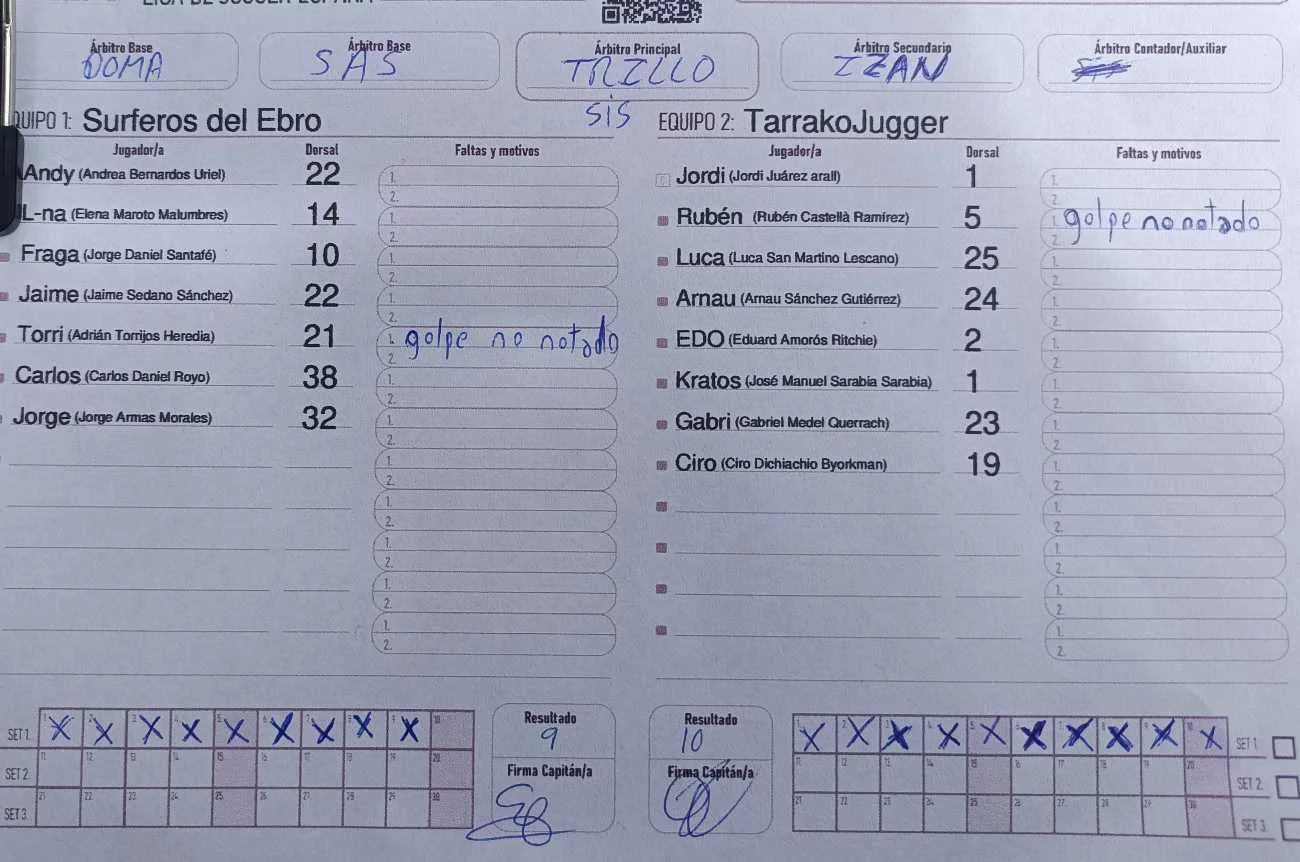 LIGA DE JUGGER ESPAÑA
Árbitro Base
DOMA
Árbitro Base
SAS
Árbitro Principal
TRILLO
SIS
Árbitro Secundario
IZAN
Árbitro Contador/Auxiliar
QUIPO 1: Surferos del Ebro
Jugador/a Dorsal Faltas y motivos
Andy (Andrea Bernardos Uriel) 22 1.
2.
L-na (Elena Maroto Malumbres) 14 1.
2.
Fraga (Jorge Daniel Santafé) 10 1.
2.
Jaime (Jaime Sedano Sánchez) 22 1.
2.
Torri (Adrián Torrijos Heredia) 21 1. golpe no notado
2.
Carlos (Carlos Daniel Royo) 38 1.
2.
Jorge (Jorge Armas Morales) 32 1.
2.
1.
2.
1.
2.
1.
2.
1.
2.
1.
2.
EQUIPO 2: TarrakoJugger
Jugador/a Dorsal Faltas y motivos
Jordi (Jordi Juárez arall) 1 1.
2.
Rubén (Rubén Castellà Ramírez) 5 1. golpe no notado
2.
Luca (Luca San Martino Lescano) 25 1.
2.
Arnau (Arnau Sánchez Gutiérrez) 24 1.
2.
EDO (Eduard Amorós Ritchie) 2 1.
2.
Kratos (José Manuel Sarabia Sarabia) 1 1.
2.
Gabri (Gabriel Medel Querrach) 23 1.
2.
Ciro (Ciro Dichiachio Byorkman) 19 1.
2.
1.
2.
1.
2.
1.
2.
1.
2.
SET 1. 1 X 2 X 3 X 4 X 5 X 6 X 7 X 8 X 9 X 10
SET 2. 11 12 13 14 15 16 17 18 19 20
SET 3. 21 22 23 24 25 26 27 28 29 30
Resultado
9
Firma Capitán/a
Resultado
10
Firma Capitán/a
1 X 2 X 3 X 4 X 5 X 6 X 7 X 8 X 9 X 10 X SET 1.
11 12 13 14 15 16 17 18 19 20 SET 2.
21 22 23 24 25 26 27 28 29 30 SET 3.